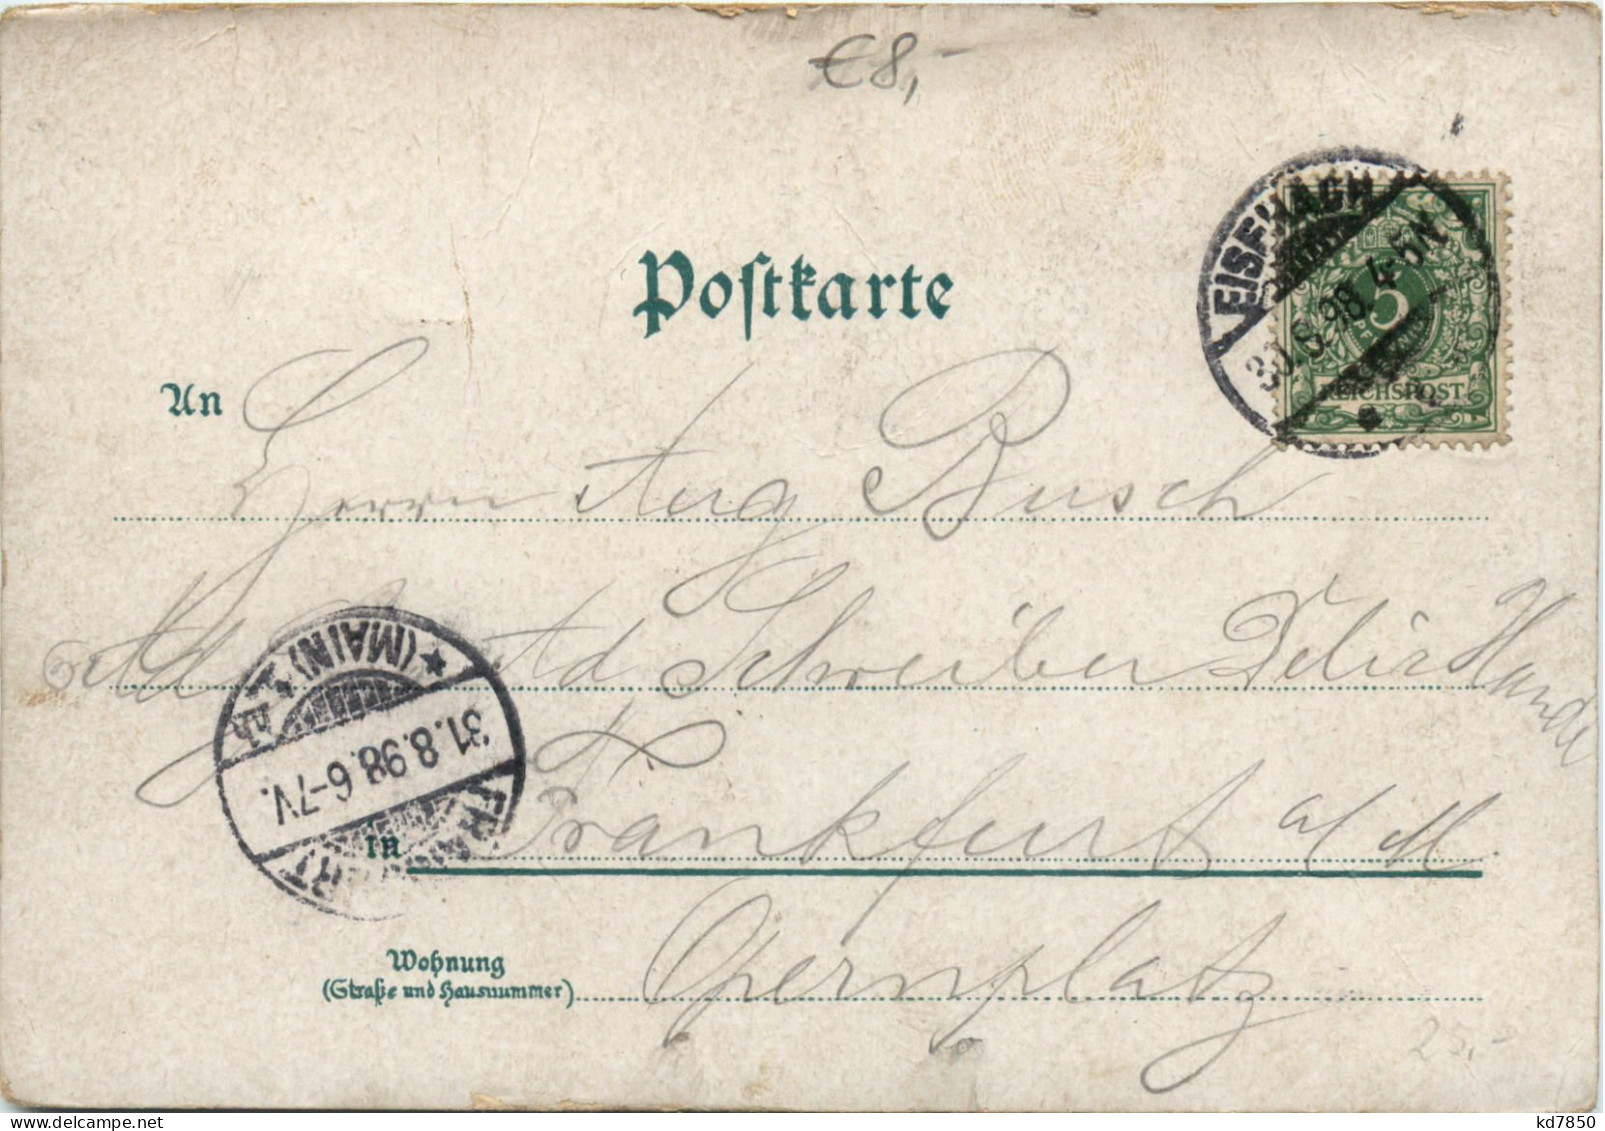 €8,-
Postkarte
EISENACH
30.8.98. 4-5N
5
REICHSPOST
An
Herrn Aug Busch
Ad Ad Schreiber Delic Hande
FRANKFURT (MAIN)
31.8.98. 6-7V.
in Frankfurt a/M
Wohnung
(Straße und Hausnummer)
Opernplatz
25,-
kd7850